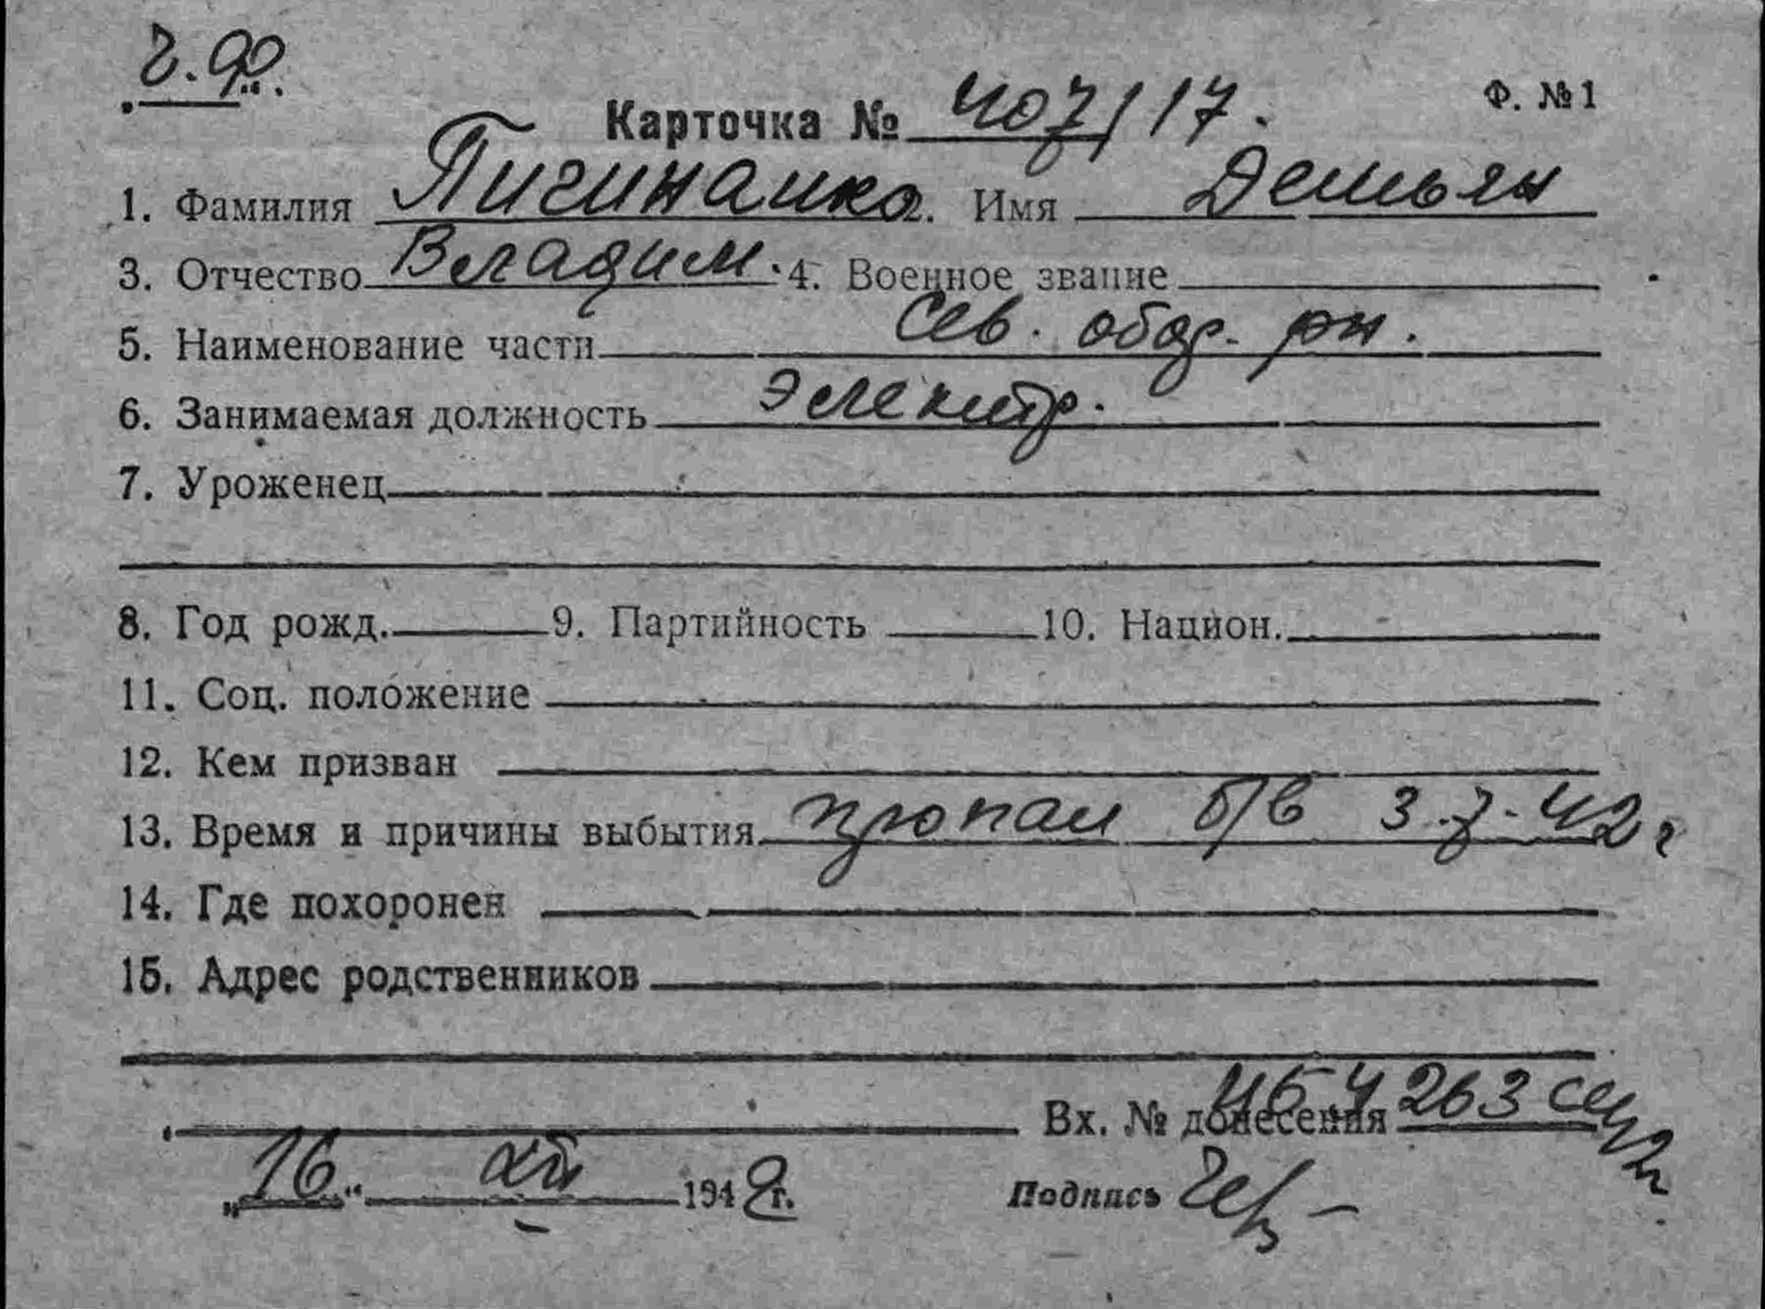 Ч.Ф.
Карточка № 407/17. Ф. №1
1. Фамилия Пигинашко 2. Имя Демьян
3. Отчество Владим. 4. Военное звание
5. Наименование части Сев. обор. рн.
6. Занимаемая должность электр.
7. Уроженец
8. Год рожд. 9. Партийность 10. Национ.
11. Соц. положение
12. Кем призван
13. Время и причины выбытия пропал б/в 3.7.42 г
14. Где похоронен
15. Адрес родственников
Вх. № донесения 263
„16“ XII 1942 г. Подпись